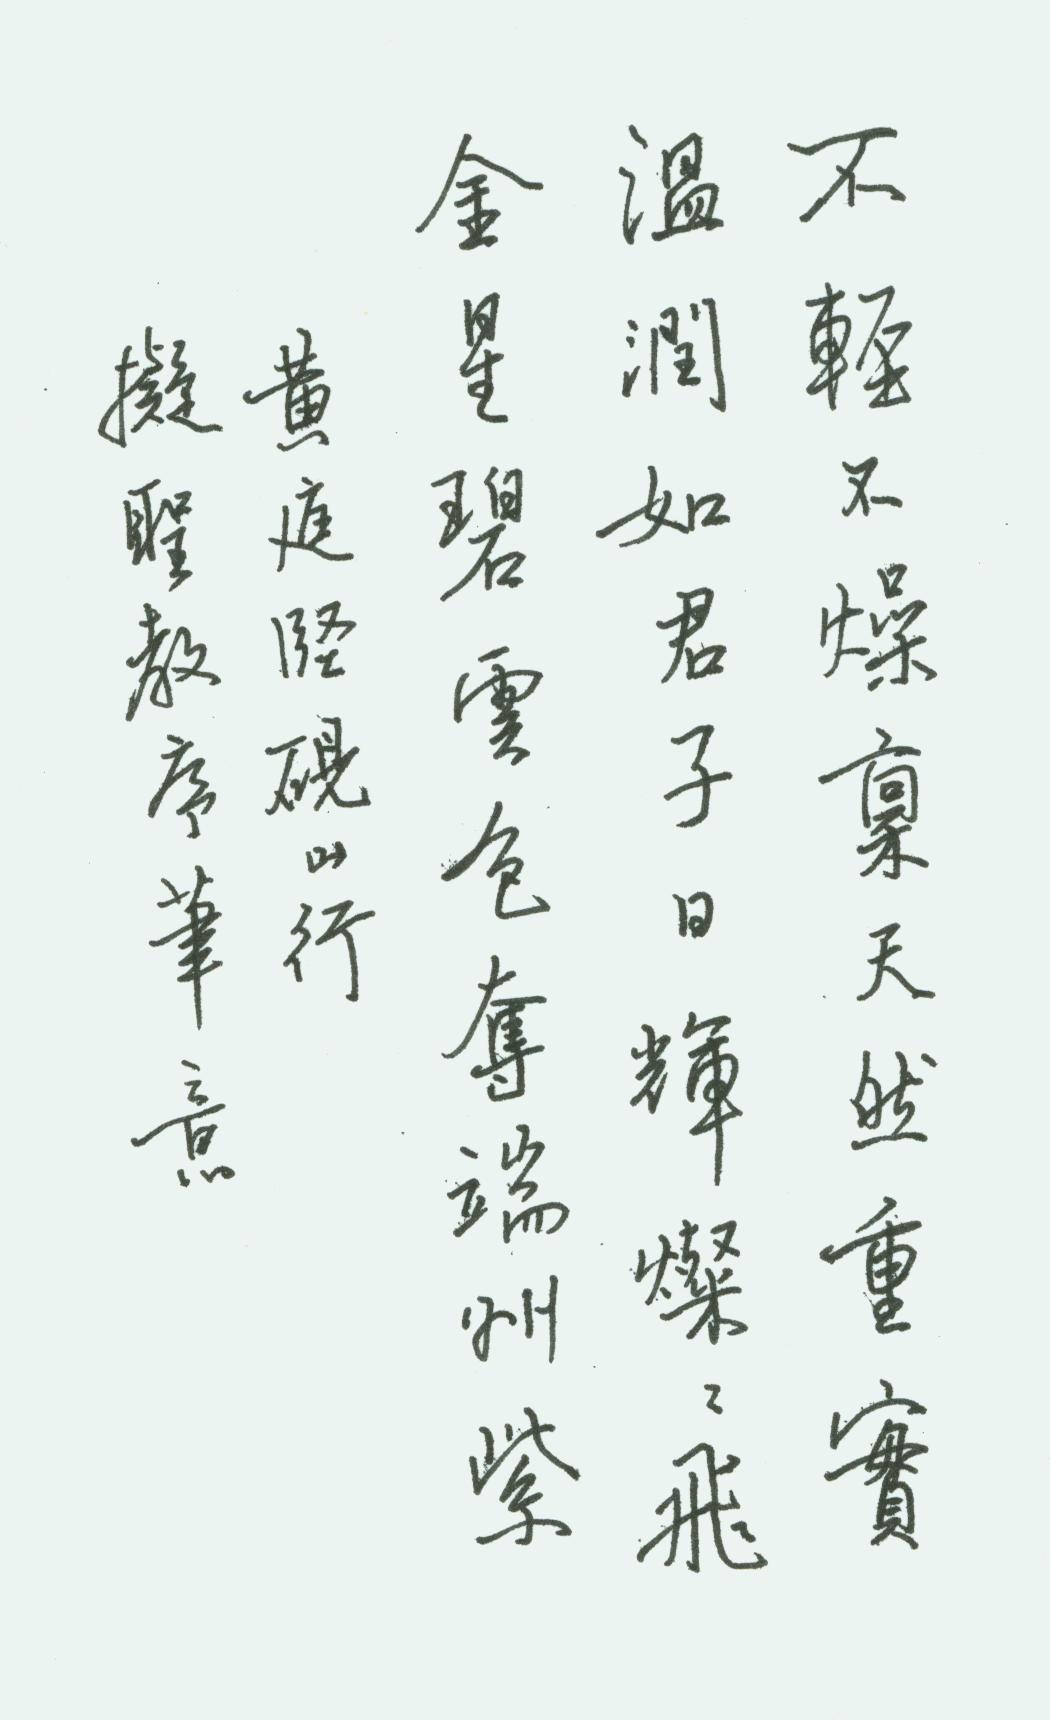 不輕不燥稟天然重實
溫潤如君子日輝燦〻飛
金星碧雲色奪端州紫
黄庭堅硯山行
擬聖教序筆意